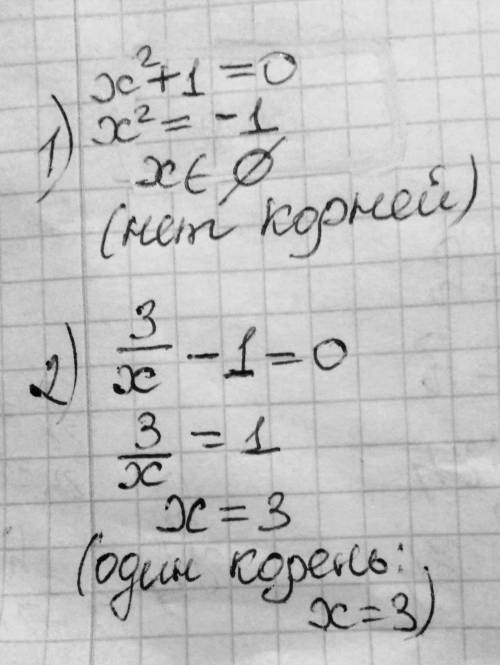 1) x² + 1 = 0
x² = -1
x ∈ ∅
(нет корней)
2) 3/x - 1 = 0
3/x = 1
x = 3
(один корень:
x = 3)